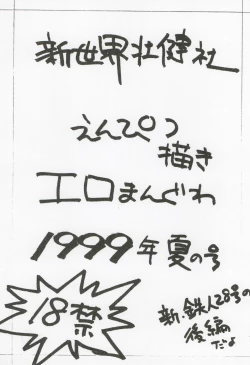 新世界壮健社
えんぴつ
描き
エロまんぐわ
1999年夏の号
18禁
新・鉄人28号の
後編
だよ